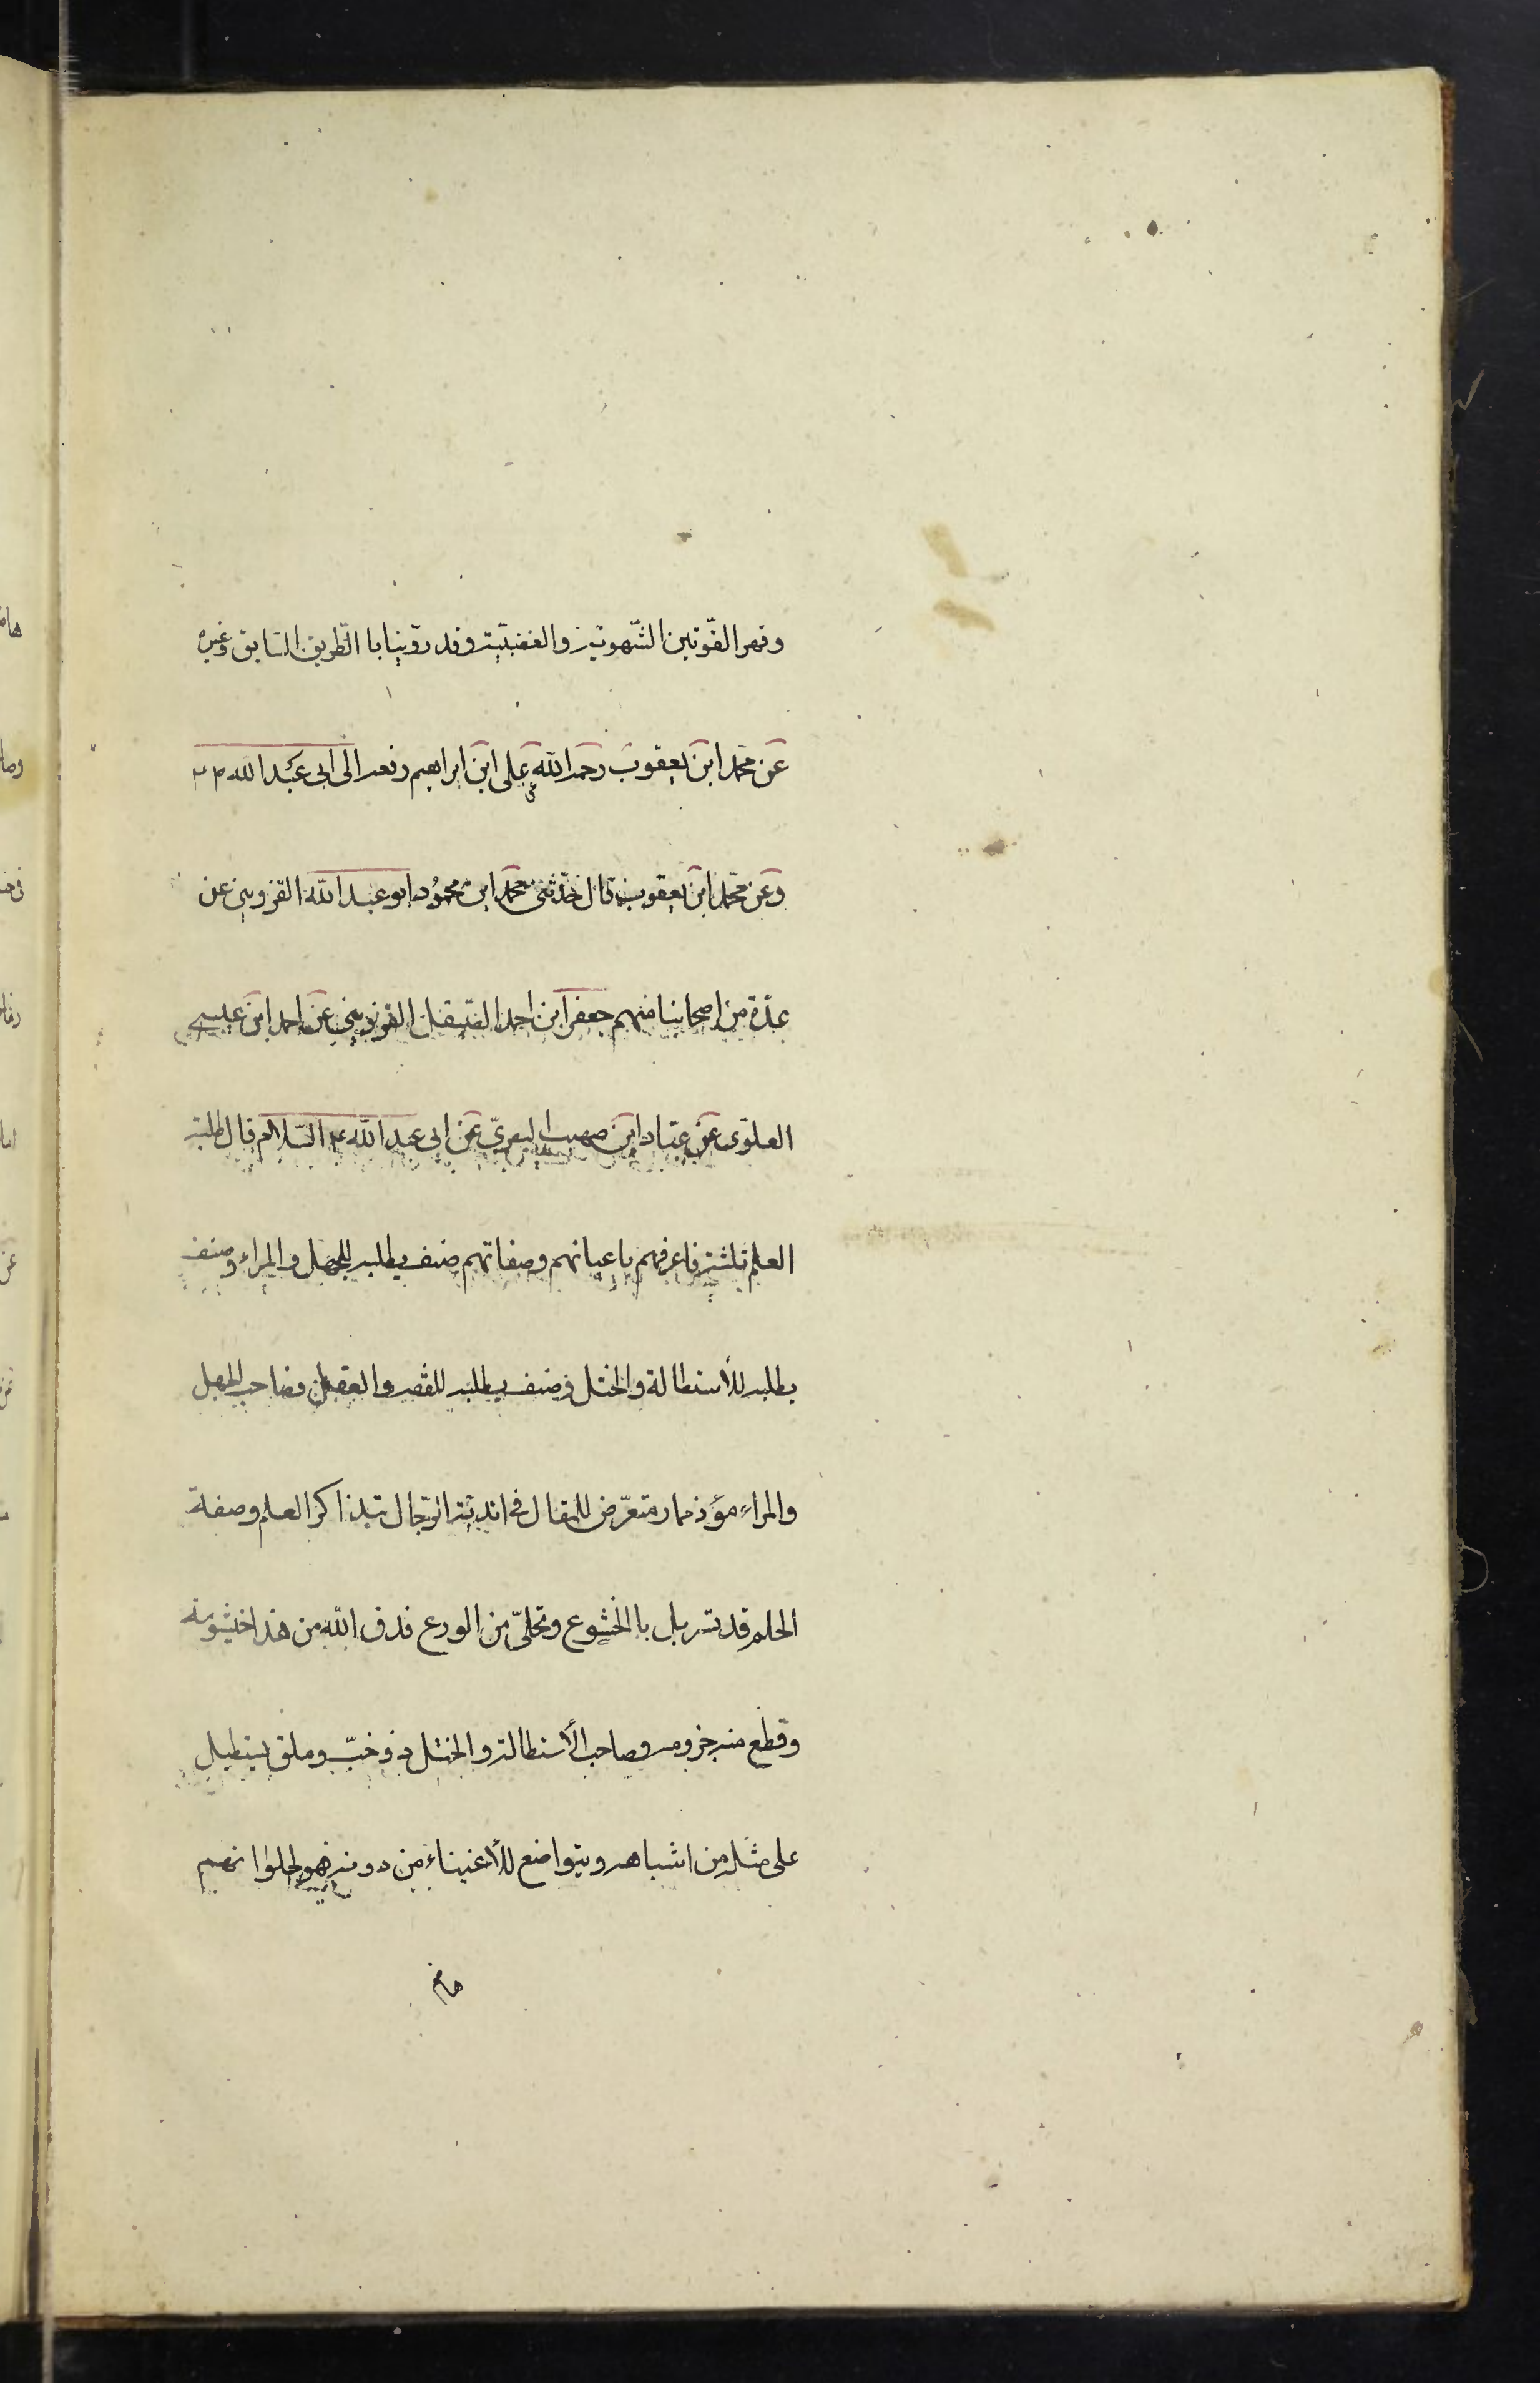 وقهر القوّتين الشّهويّة والغضبيّة وقد روّينا با الطّريق السّابق وغيره
عن محمّد ابن يعقوب رحمه الله عن على ابن ابراهيم رفعه الى ابى عبد الله ۴ ح
وعن محمّد ابن يعقوب قال حدّثنى محمّد ابن محمُود ابو عبد الله القزوينى عن
عدّة من اصحابنا منهم جعفر ابن احمد الصّيقل القزوينى عن احمد ابن عيسى
العلوّى عن عبّاد ابن صهيب البصرىّ عن ابى عبد الله ۴ السّلام قال طلبة
العلم ثلثة فاعرفهم باعيانهم وصفاتهم صنف يطلبه للجهل والمراء وصنف
يطلبه للأستطالة والختل وصنف يطلبه للفقه والعقل فصاحب الجهل
والمراء مؤذ ممار متعرّض للمقال فى اندية الرّجال بتذاكر العلم وصفة
الحلم قد تسربل با الخشوع وتخلّى من الورع فدق الله من هذا خيشومه
وقطع منه حيزومه وصاحب الأستطالة والختل ذو خبّ وملق يستطيل
على مثله من اشباهه ويتواضع للأغنياء من دونه فهو لحلوانهم
هاضم